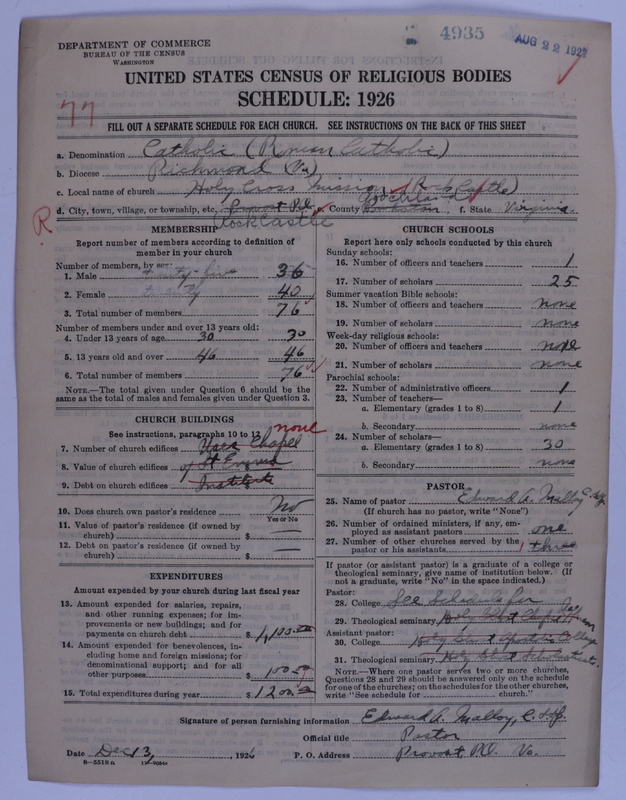 4935
AUG 22 1927
DEPARTMENT OF COMMERCE
BUREAU OF THE CENSUS
WASHINGTON
UNITED STATES CENSUS OF RELIGIOUS BODIES
SCHEDULE: 1926
77
FILL OUT A SEPARATE SCHEDULE FOR EACH CHURCH. SEE INSTRUCTIONS ON THE BACK OF THIS SHEET
a. Denomination Catholic (Roman Catholic)
b. Diocese Richmond (Va)
c. Local name of church Holy Cross Mission (Rock Castle)
d. City, town, village, or township, etc. Provost P.O. e. County Goochland f. State Virginia
Rock Castle
R
MEMBERSHIP
Report number of members according to definition of member in your church
Number of members, by sex:
1. Male thirty-five 36
2. Female 40
3. Total number of members 76
Number of members under and over 13 years old:
4. Under 13 years of age 30 30
5. 13 years old and over 46 46
6. Total number of members 76
NOTE.—The total given under Question 6 should be the same as the total of males and females given under Question 3.
CHURCH BUILDINGS
See instructions, paragraphs 10 to 12 none
7. Number of church edifices Uses Chapel
8. Value of church edifices of St Emma
9. Debt on church edifices Institute
10. Does church own pastor's residence No
Yes or No
11. Value of pastor's residence (if owned by church) $ —
12. Debt on pastor's residence (if owned by church) $ —
EXPENDITURES
Amount expended by your church during last fiscal year
13. Amount expended for salaries, repairs, and other running expenses; for improvements or new buildings; and for payments on church debt $ 1,100.00
14. Amount expended for benevolences, including home and foreign missions; for denominational support; and for all other purposes 100.00
15. Total expenditures during year $ 1200.00
CHURCH SCHOOLS
Report here only schools conducted by this church
Sunday schools:
16. Number of officers and teachers 1
17. Number of scholars 25
Summer vacation Bible schools:
18. Number of officers and teachers none
19. Number of scholars none
Week-day religious schools:
20. Number of officers and teachers none
21. Number of scholars none
Parochial schools:
22. Number of administrative officers 1
23. Number of teachers—
a. Elementary (grades 1 to 8) 1
b. Secondary none
24. Number of scholars—
a. Elementary (grades 1 to 8) 30
b. Secondary none
PASTOR
25. Name of pastor Edward A. Malloy C.S.Sp.
(If church has no pastor, write "None")
26. Number of ordained ministers, if any, employed as assistant pastors one
27. Number of other churches served by the pastor or his assistants 1 three
If pastor (or assistant pastor) is a graduate of a college or theological seminary, give name of institution below. (If not a graduate, write "No" in the space indicated.)
Pastor:
28. College See Schedule for
29. Theological seminary Holy Ghost
Assistant pastor:
30. College Holy Ghost Apostolic College
31. Theological seminary Holy Ghost Scholasticate.
NOTE.—Where one pastor serves two or more churches, Questions 28 and 29 should be answered only on the schedule for one of the churches; on the schedules for the other churches, write "See schedule for church."
Signature of person furnishing information Edward A. Malloy, C.S.Sp.
Official title Pastor
Date Dec 13, 1926 P. O. Address Provost P.O. Va.
8—5519a